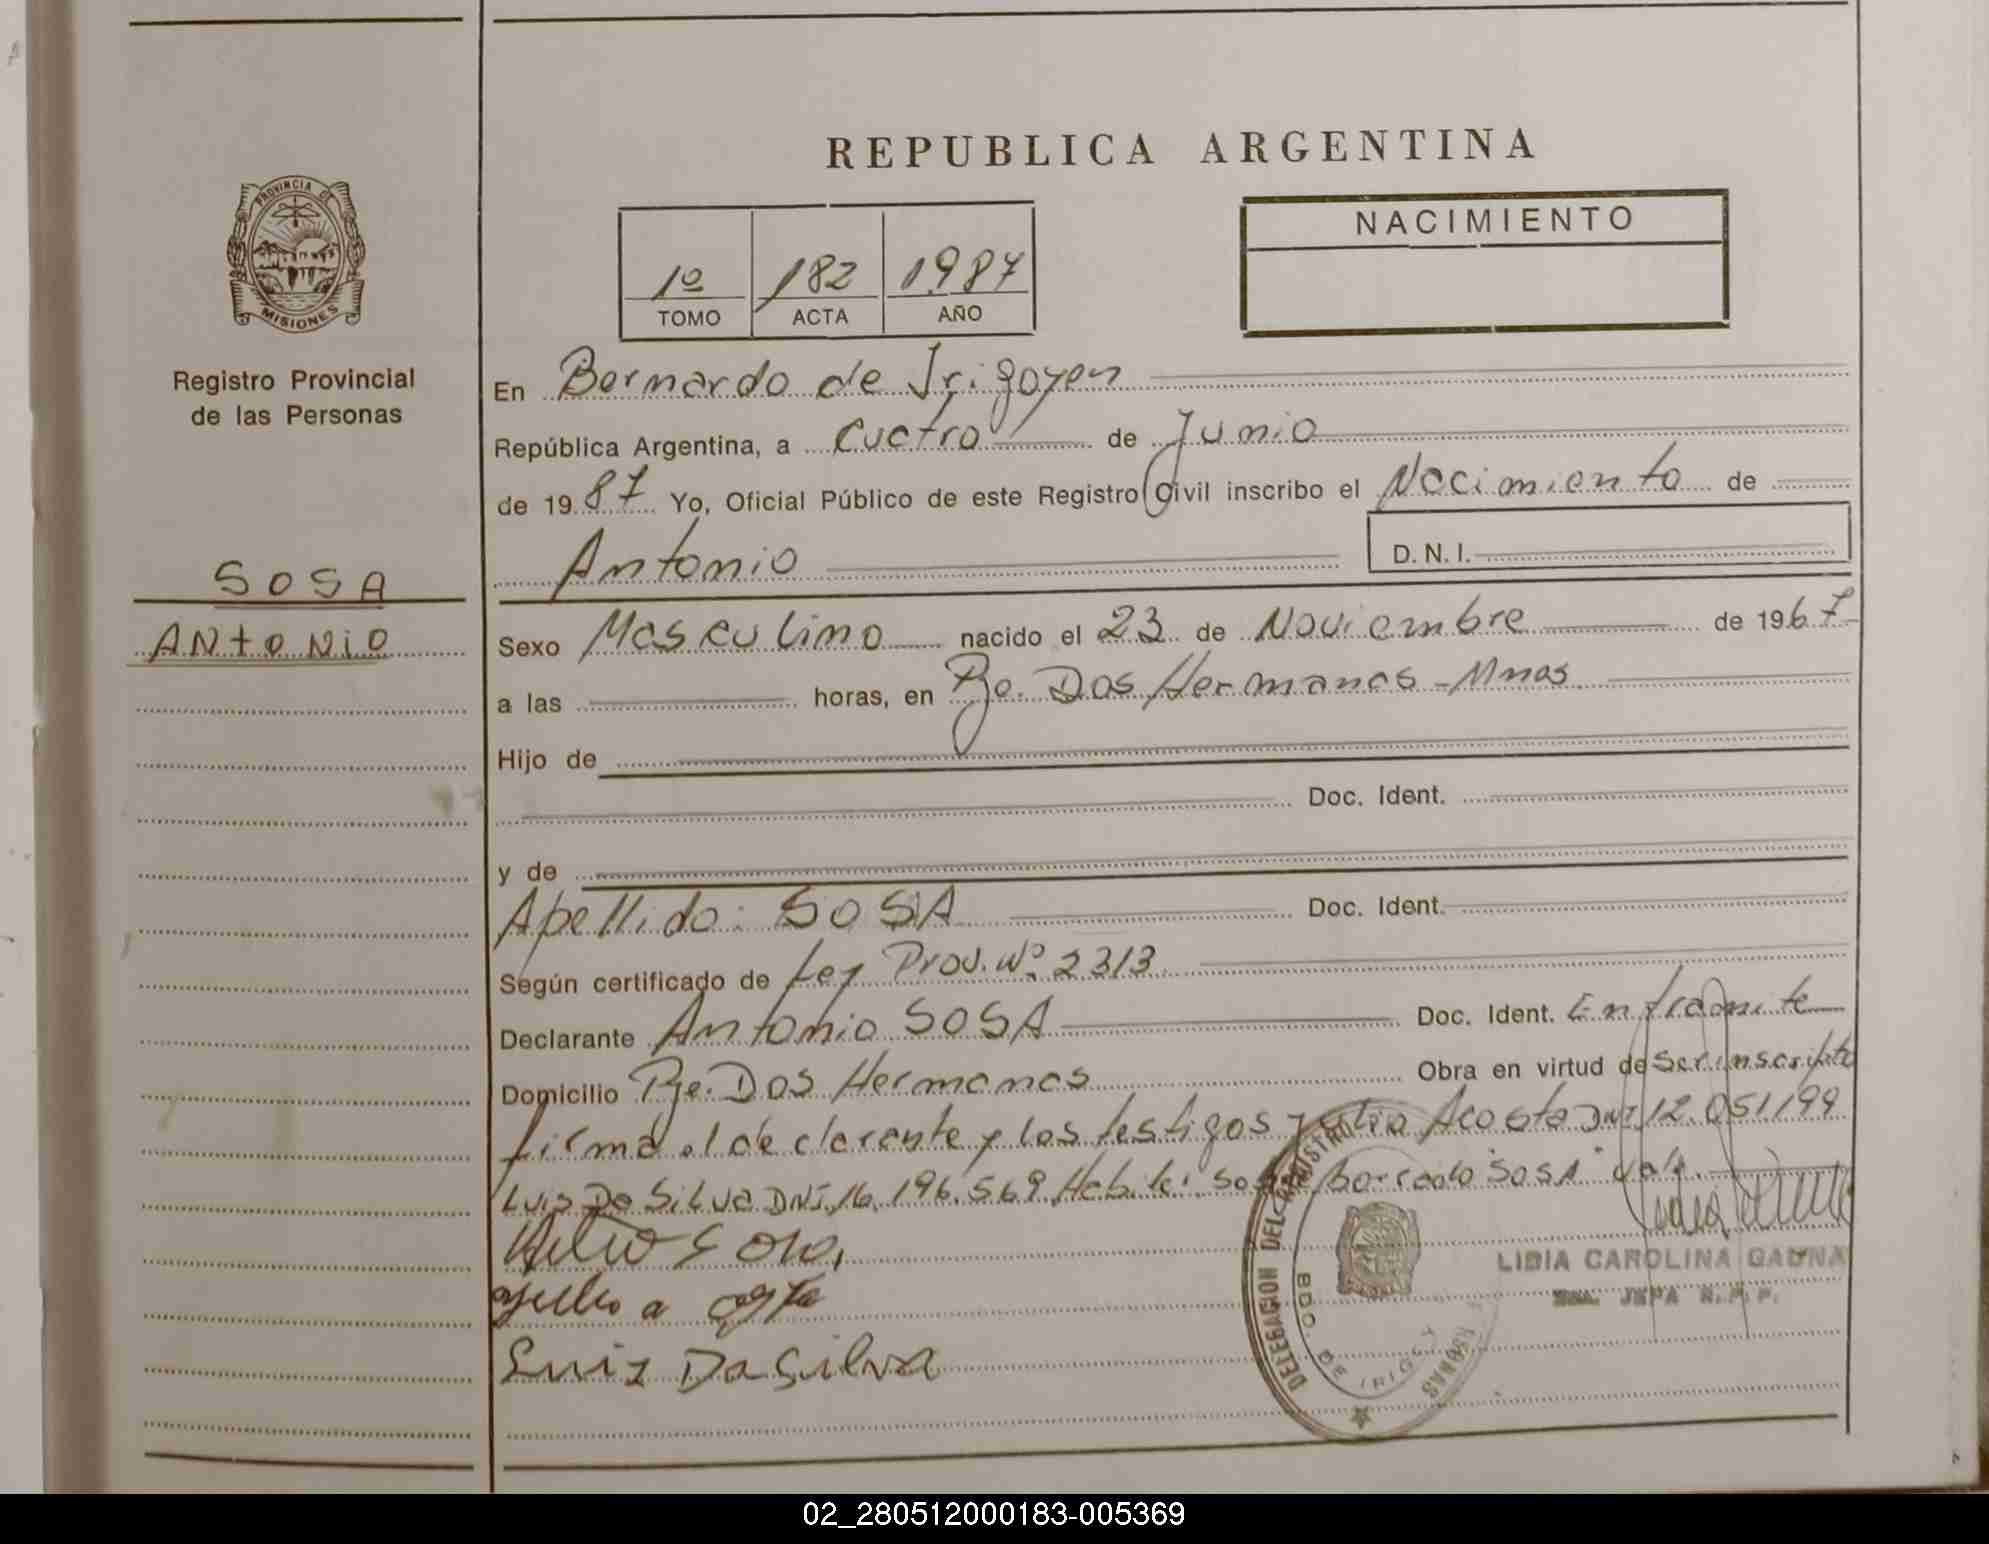 REPUBLICA ARGENTINA
NACIMIENTO
1º 182 1987
TOMO ACTA AÑO
PROVINCIA DE
MISIONES
Registro Provincial
de las Personas
SOSA
ANtONiO
En Bernardo de Irigoyen
República Argentina, a Cuatro de Junio
de 1987 Yo, Oficial Público de este Registro Civil inscribo el Nacimiento de
Antonio D.N.I.
Sexo Masculino nacido el 23 de Noviembre de 1967
a las horas, en Pje. Dos Hermanas - Mnes
Hijo de
Doc. Ident.
y de
Apellido: SOSA Doc. Ident.
Según certificado de Ley Prov. Nº 2313
Declarante Antonio SOSA Doc. Ident. En tramite
Domicilio Pje. Dos Hermanas Obra en virtud de ser inscripto
firma el declarante y los testigos Acosta DNI 12.051199
Luis Da Silva DNI. 16.196.569 borrado "SOSA" vale.
Luiz Da Silva
DELEGACION DEL REGISTRO
BDO. DE IRIGOY
LIDIA CAROLINA GAUNA
JEFA R.P.P.
02_280512000183-005369